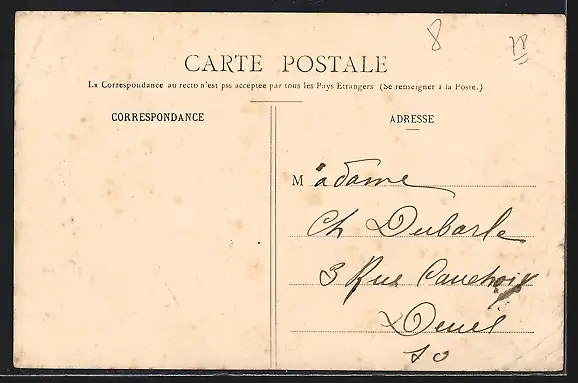 8 78
CARTE POSTALE
La Correspondance au recto n'est pss acceptee par tous les Pays Etrangers (Se renseigner à la Poste.)
CORRESPONDANCE
ADRESSE
Madame
Ch Dubarle
3 Rue Cauchoix
Deuil
SO